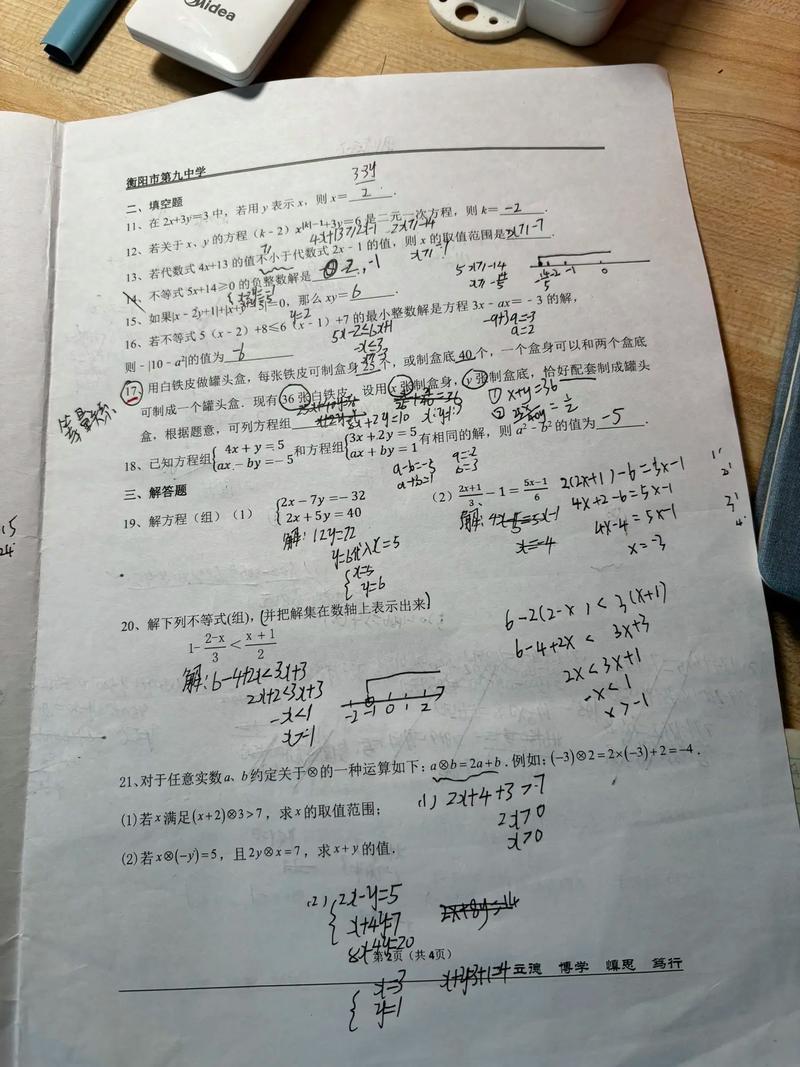 Midea
衡阳市第九中学
二、填空题
11、在 2x+3y=3 中，若用 y 表示 x，则 x= (3-3y)/2 .
12、若关于 x、y 的方程 (k-2)x^{|k|-1}+3y=6 是二元一次方程，则 k= -2 .
4x+13≥2x-1 2x≥-14
13、若代数式 4x+13 的值不小于代数式 2x-1 的值，则 x 的取值范围是 x≥-7
x≥-7
14、不等式 5x+14≥0 的负整数解是 -2,-1
5x≥-14
x≥-14/5
-14/5 -2 -1 0
15、如果|x-2y+1|+|x+y-5|=0，那么 xy= 6 .
y=2
16、若不等式 5（x-2）+8≤6（x-1）+7 的最小整数解是方程 3x-ax=-3 的解，
5x-2≤6x+1
-x≤3
a=2
则-|10-a²|的值为 -6
17、用白铁皮做罐头盒，每张铁皮可制盒身 25 个，或制盒底 40 个，一个盒身可以和两个盒底
可制成一个罐头盒．现有 36 张白铁皮，设用 x 张制盒身，y 张制盒底，恰好配套制成罐头
① x+y=36
盒，根据题意，可列方程组
18、已知方程组{4x+y=5 ax-by=-5 和方程组{3x+2y=5 ax+by=1 有相同的解，则 a²-b² 的值为 -5 .
a-b=-5
a+b=1
a=-2
b=3
三、解答题
19、解方程（组）（1） {2x-7y=-32 2x+5y=40
（2） (2x+1)/3 - 1 = (5x-1)/6
解：12y=72
y=6代入x=5
{x=5
y=6
x=-4
2(2x+1)-6=5x-1
4x+2-6=5x-1
4x-4=5x-1
x=-3
20、解下列不等式(组)，并把解集在数轴上表示出来
1-(2-x)/3 < (x+1)/2
解：6-4+2x<3x+3
2x+2<3x+3
-x<1
x>-1
-2 -1 0 1 2
6-2(2-x)<3(x+1)
6-4+2x< 3x+3
2x<3x+1
-x<1
x>-1
21、对于任意实数a、b约定关于⊗的一种运算如下：a⊗b=2a+b．例如：(-3)⊗2=2×(-3)+2=-4．
(1)若x满足(x+2)⊗3>7，求x的取值范围；
(1) 2x+4+3>7
2x>0
x>0
(2)若x⊗(-y)=5，且2y⊗x=7，求x+y的值．
(2) {2x-y=5
x+4y=7
8x-4y=20
第2页（共4页）
立德 博学 慎思 笃行
{x=3
y=1
x+y=3+1=4